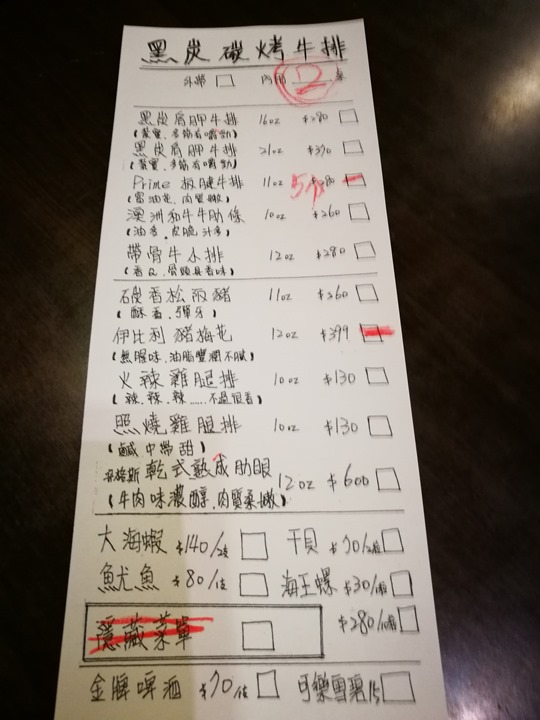 黑炭碳烤牛排
外帶 內用 2 桌
黑炭肩胛牛排 16oz $280
(蒸蜜、多筋有嚼勁)
黑炭肩胛牛排 21oz $390
(蒸蜜、多筋有嚼勁)
Prime 板腱牛排 11oz
(富油花、肉質嫩)
澳洲和牛牛肋條 10oz $260
(油多、皮脆、汁多)
帶骨牛小排 12oz $280
(香Q、骨頭具香味)
碳香松阪豬 11oz $260
(酥香、彈牙)
伊比利豬梅花 12oz $399
(無腥味、油脂豐潤不膩)
火辣雞腿排 10oz $130
(辣、辣、辣……不過很香)
照燒雞腿排 10oz $130
(鹹中帶甜)
安格斯乾式熟成肋眼 12oz $600
(牛肉味濃醇、肉質柔嫩)
大海蝦 $140/2隻 干貝 $70/2顆
魷魚 $80/隻 海王螺 $30/顆
隱藏菜單 $280/10顆
金牌啤酒 $70/ 可樂雪碧15